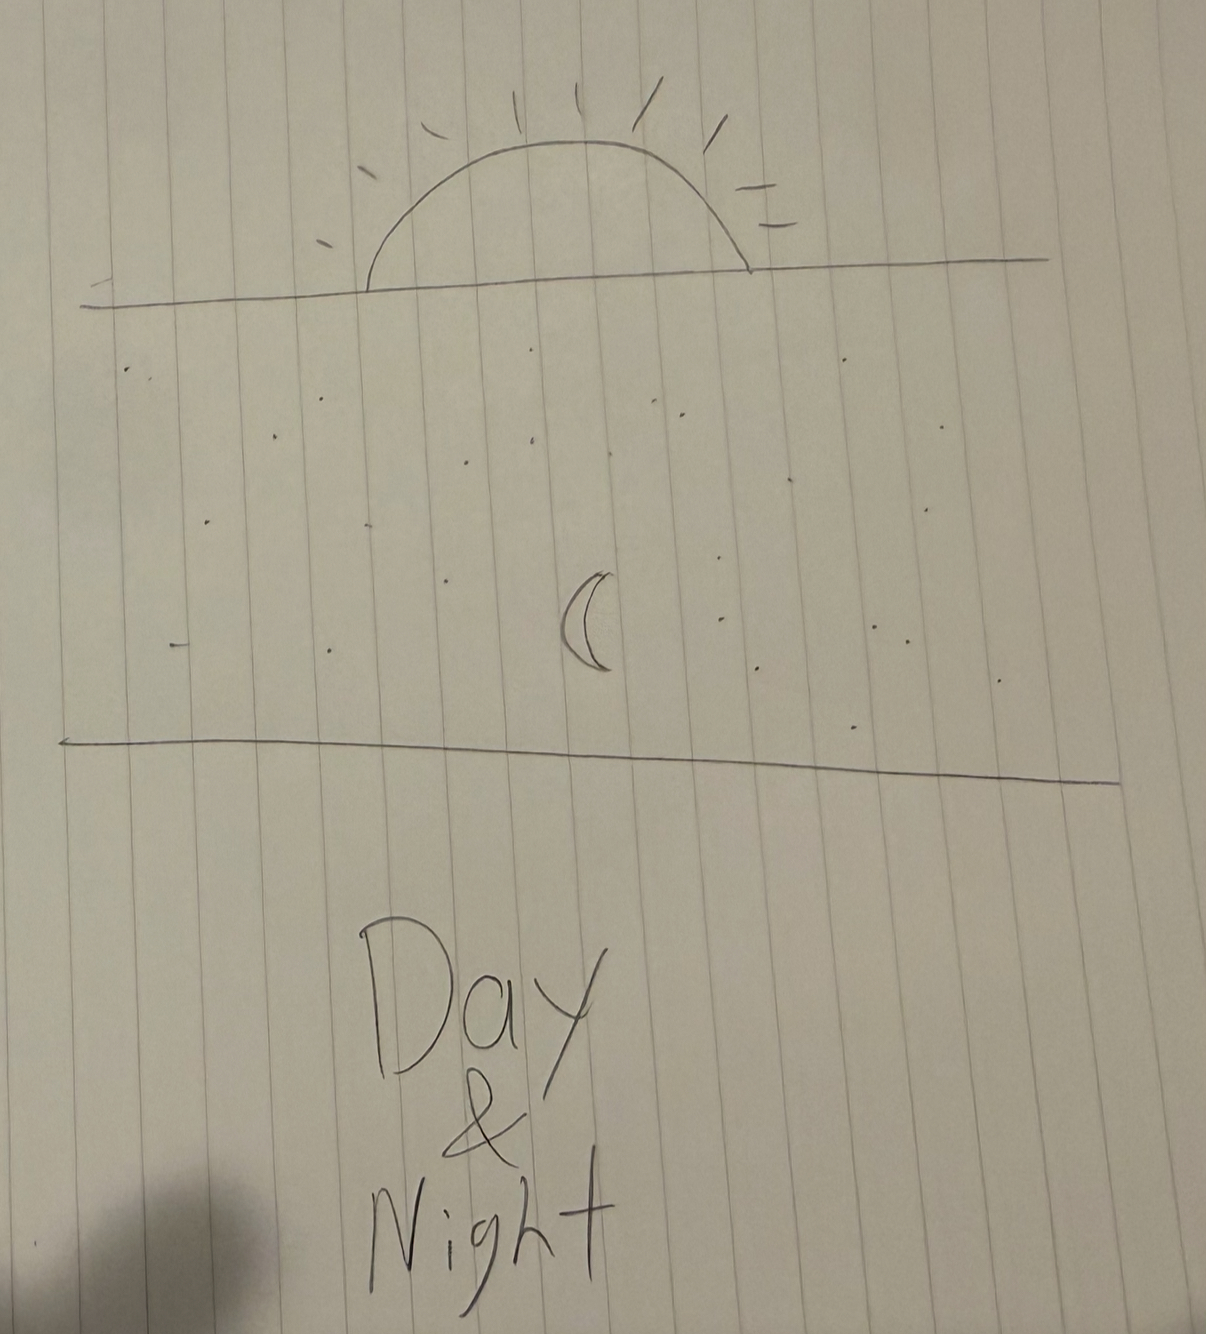 Day
&
Night